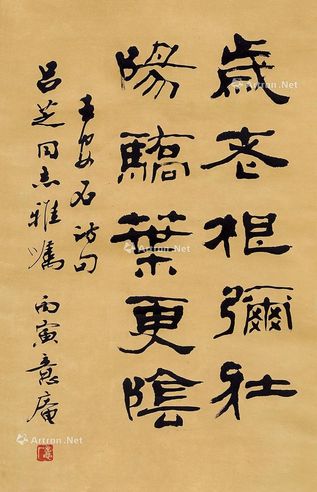 歲老根彌壯
陽驕葉更陰
王安石詩句
呂芝同志雅囑 丙寅意庵
Artron.Net
Artron.Net
Artron.Net
Artron.Net